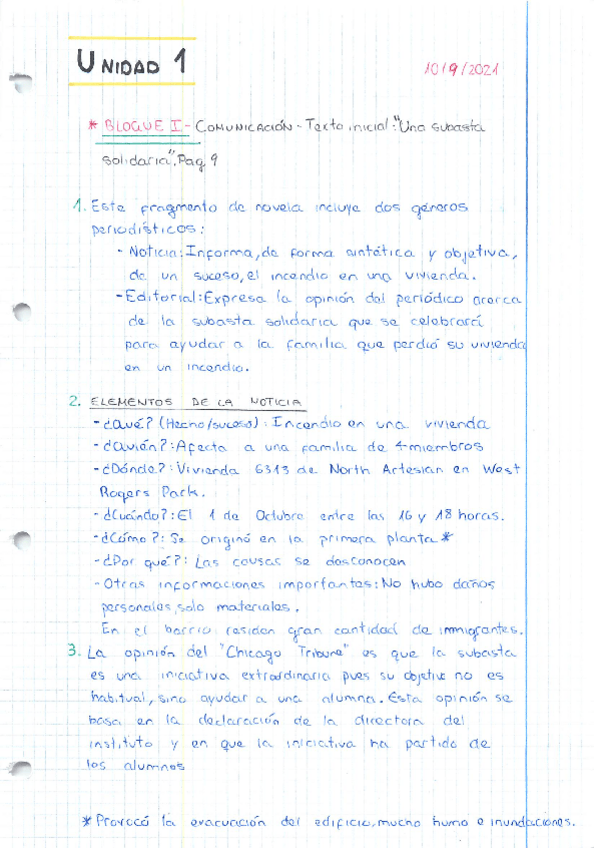 UNIDAD 1
10/9/2021
* BLOQUE I - COMUNICACIÓN - Texto inicial: "Una subasta
solidaria", Pag 9
1. Este fragmento de novela incluye dos géneros
periodísticos:
- Noticia: Informa, de forma sintética y objetiva,
de un suceso, el incendio en una vivienda.
- Editorial: Expresa la opinión del periódico acerca
de la subasta solidaria que se celebrará
para ayudar a la familia que perdió su vivienda
en un incendio.
2. ELEMENTOS DE LA NOTICIA
- ¿Qué? (Hecho/suceso): Incendio en una vivienda
- ¿Quién?: Afecta a una familia de 4 miembros
- ¿Dónde?: Vivienda 6313 de North Artesian en West
Rogers Park.
- ¿Cuándo?: El 1 de Octubre entre las 16 y 18 horas.
- ¿Cómo?: Se originó en la primera planta *
- ¿Por qué?: Las causas se desconocen
- Otras informaciones importantes: No hubo daños
personales, solo materiales.
En el barrio residen gran cantidad de immigrantes.
3. La opinión del "Chicago Tribune" es que la subasta
es una iniciativa extraordinaria pues su objetivo no es
habitual, sino ayudar a una alumna. Esta opinión se
basa en la declaración de la directora del
instituto y en que la iniciativa ha partido de
los alumnos
* Provocó la evacuación del edificio, mucho humo e inundaciones.